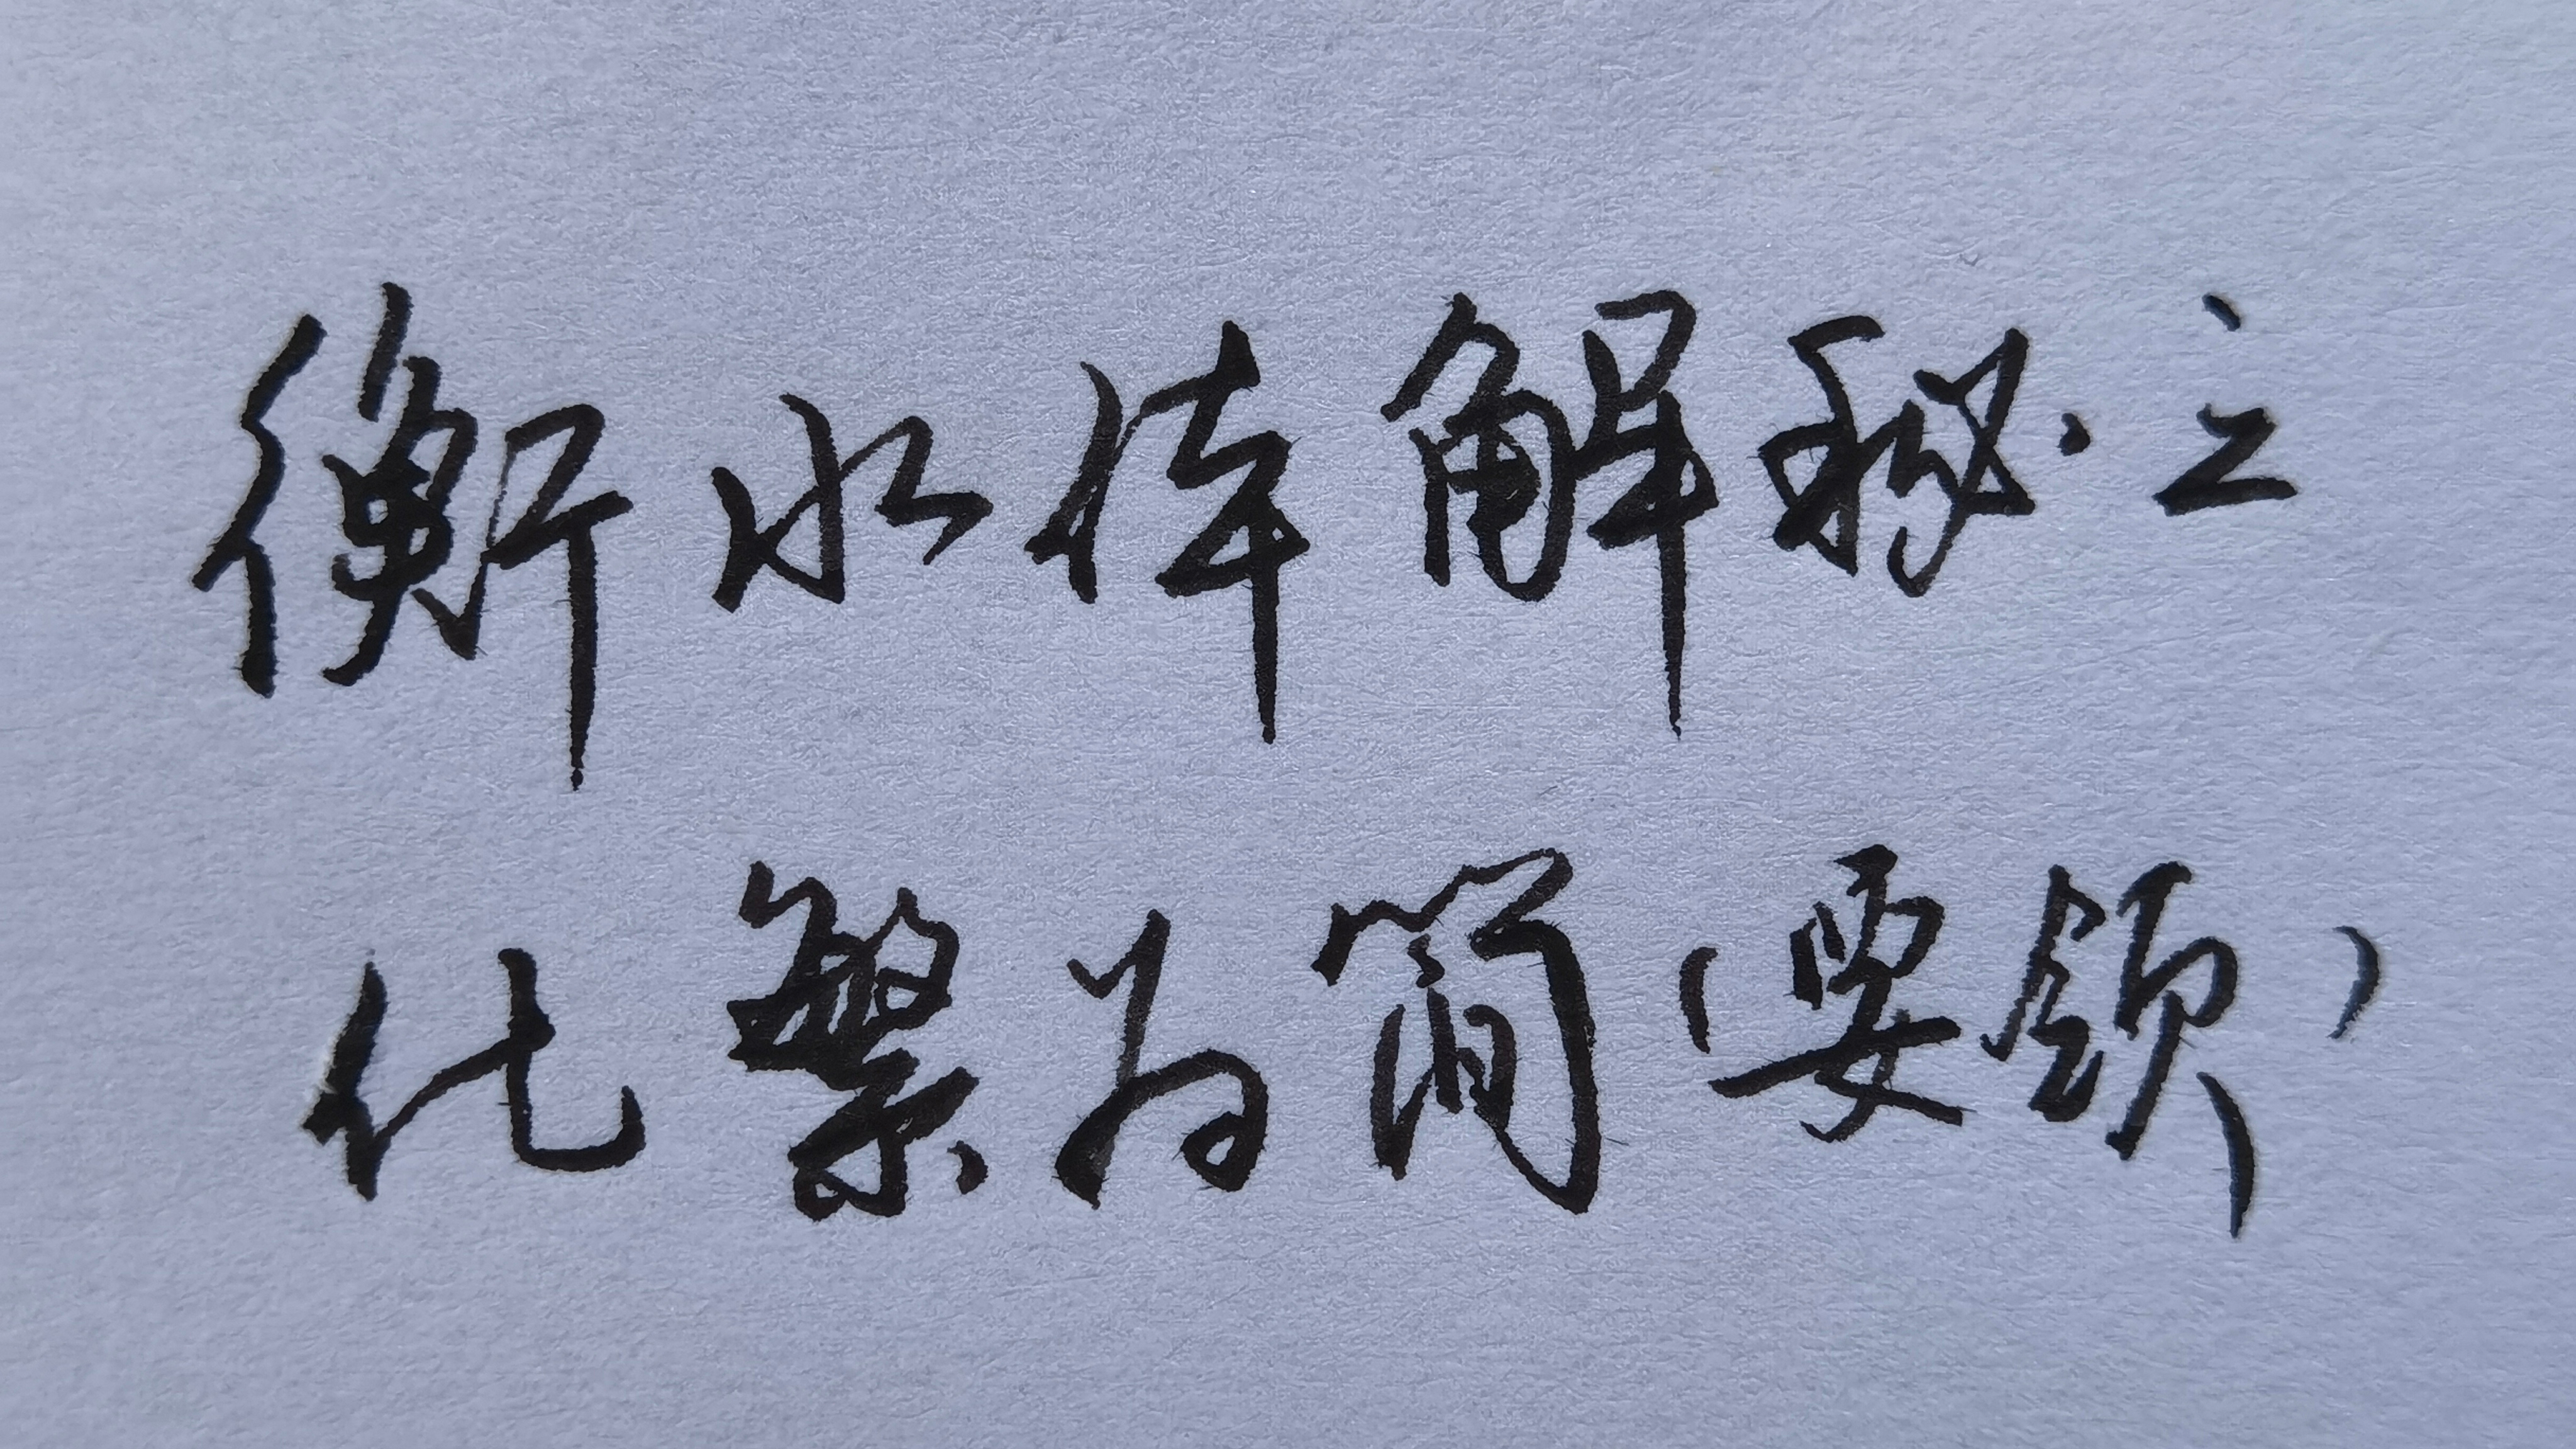 衡水体解秘之
化繁为简（要领）